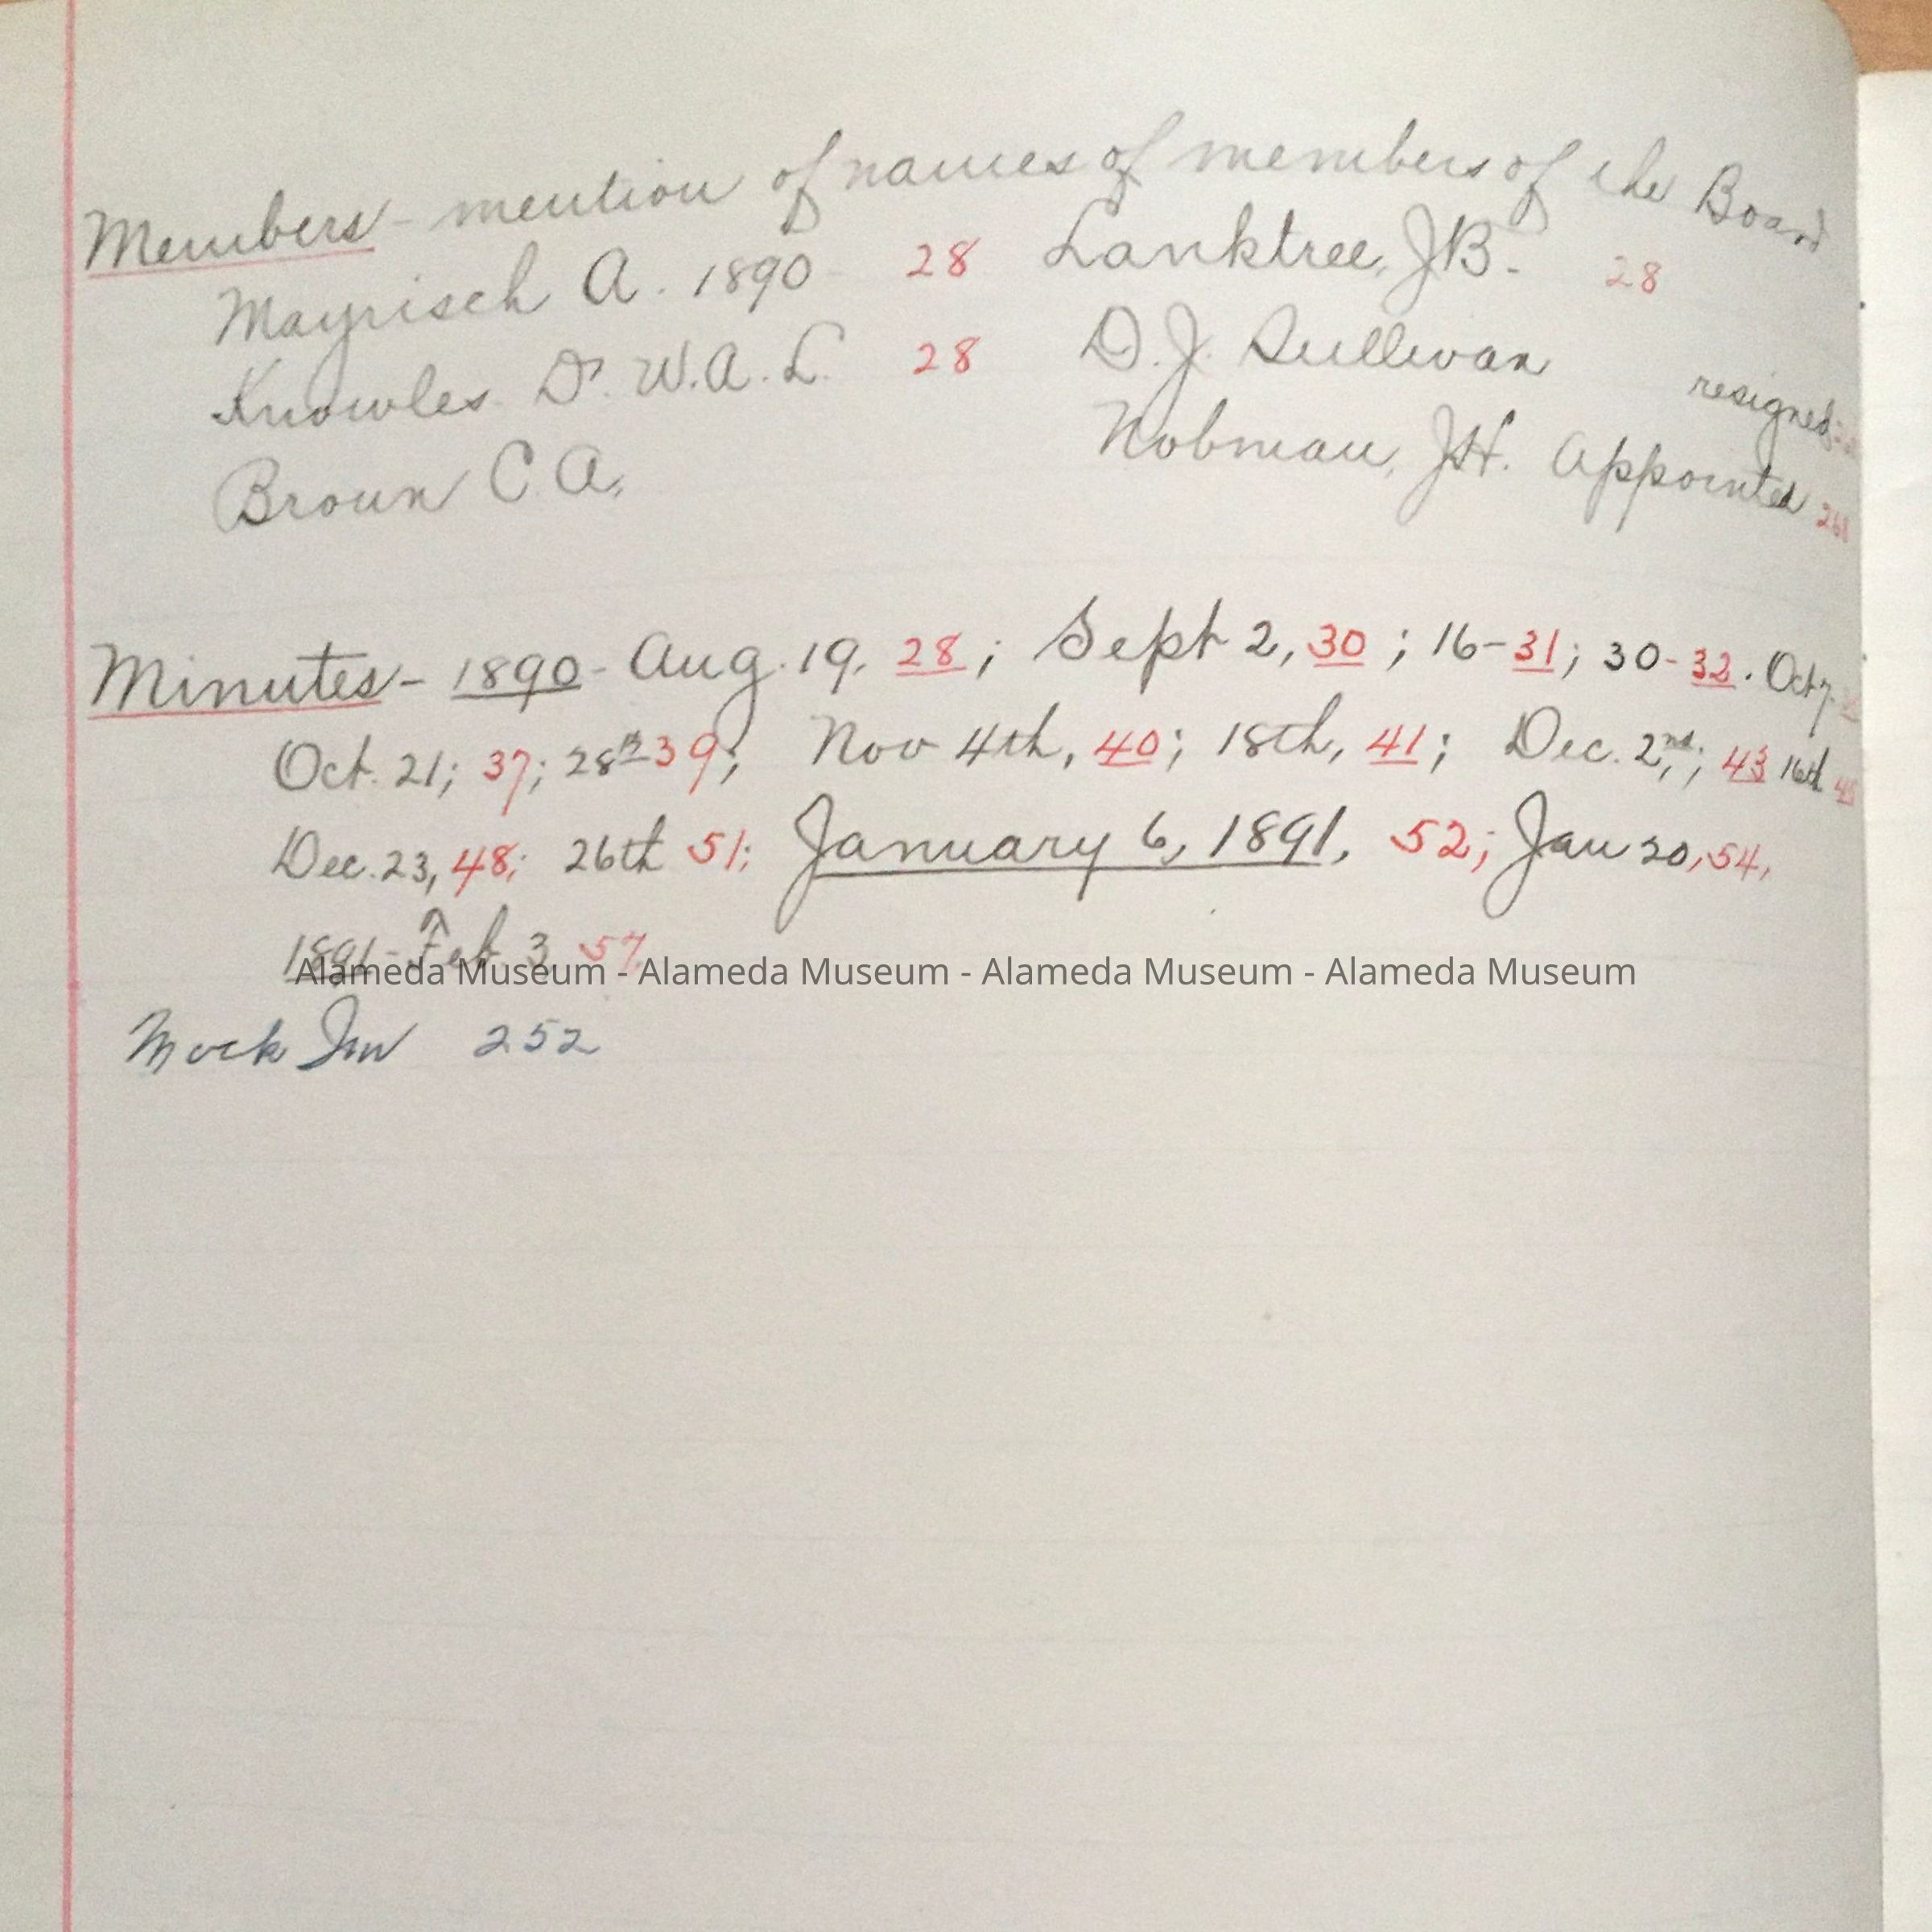 Members - mention of names of members of the Board
Mayrisch A. 1890 28 Lanktree, JB. 28
Knowles Dr. W.A.L. 28 D.J. Sullivan resigned
Broun C.A. Nobmau, JH. Appointed 268
Minutes - 1890 - Aug. 19, 28; Sept 2, 30; 16-31; 30-32. Oct 7.
Oct. 21; 37; 28th 39; Nov 4th, 40; 18th, 41; Dec. 2nd; 43 16th 45
Dec. 23, 48; 26th 51; January 6, 1891, 52; Jan 20, 54,
1891 - Feb. 3 57.
Alameda Museum - Alameda Museum - Alameda Museum - Alameda Museum
Mock Jno 252